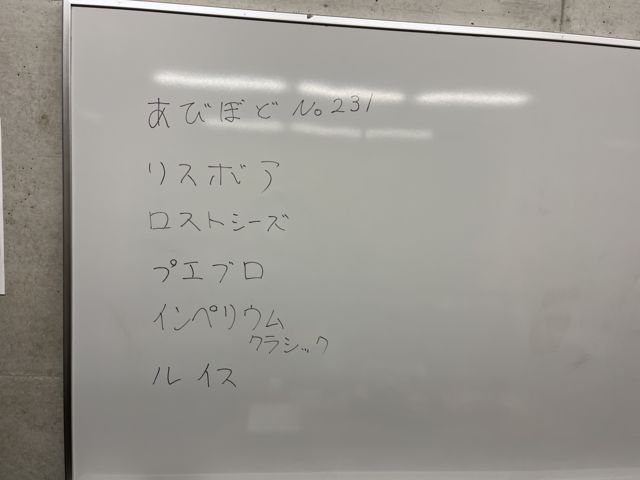 あびぼど No231
リスボア
ロストシーズ
プエブロ
インペリウム
クラシック
ルイス